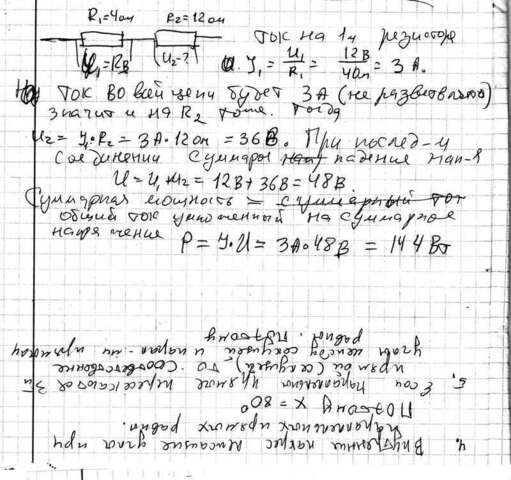 R₁=4ом R₂=12ом
U₁=12В U₂-?
ток на 1м резисторе
I₁ = U₁/R₁ = 12В/4Ом = 3А.
ток во всей цепи будет 3А (не разветвлено)
значит и на R₂ тоже. тогда
U₂=I·R₂=3А·12ом=36В. При послед-м
соединении суммарн падение нап-я
U=U₁+U₂=12В+36В=48В.
Суммарная мощность = суммарный ток
общий ток умноженный на суммарное
напряжение
P=I·U=3А·48В=144Вт
4. Внутренние накрес лежащие углы при
параллельных прямых равны.
Поэтому x=80°
5. Если параллельные прямые пересекаются 3й
прямой (секущей) то соответственные
углы между секущей и парал-ми прямыми
равны. Поэтому